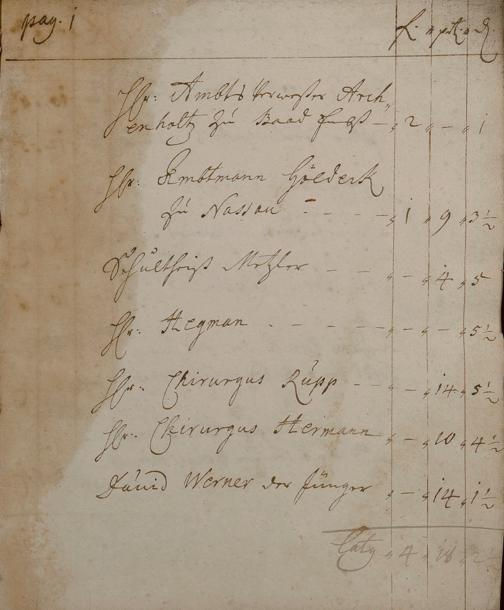 pag. 1
Hr: Ambts Verweser Arch„
enholtz zu Baad Embß – „ 2 „ – „ 1
Hr: Ambtmann Göldeck
zu Nassau - - - „ 1 „ 9 „ 3 ½
Schultheiß Metzler – – „ – „ 4 „ 5
Hr: Hegman - - - - „ – „ – „ 5 ½
Hr: Chirurgus Rúpp - - „ – „ 14 „ 5 ½
Hr: Chirurgus Hermann „ – „ 10 „ 4 ½
David Werner der jünger „ – „ 14 „ 1 ½
Latq „ 4 „